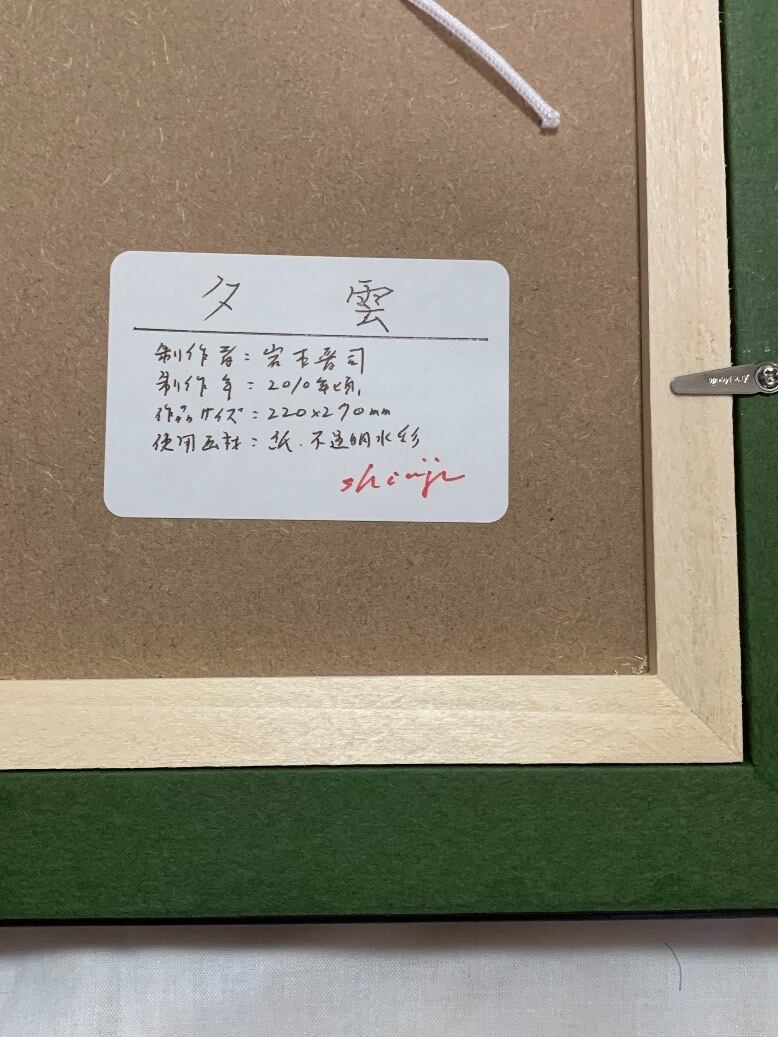 夕 雲
制作者:岩本晋司
制作年:2010年頃
作品サイズ:220×270mm
使用画材:紙.不透明水彩
shinji